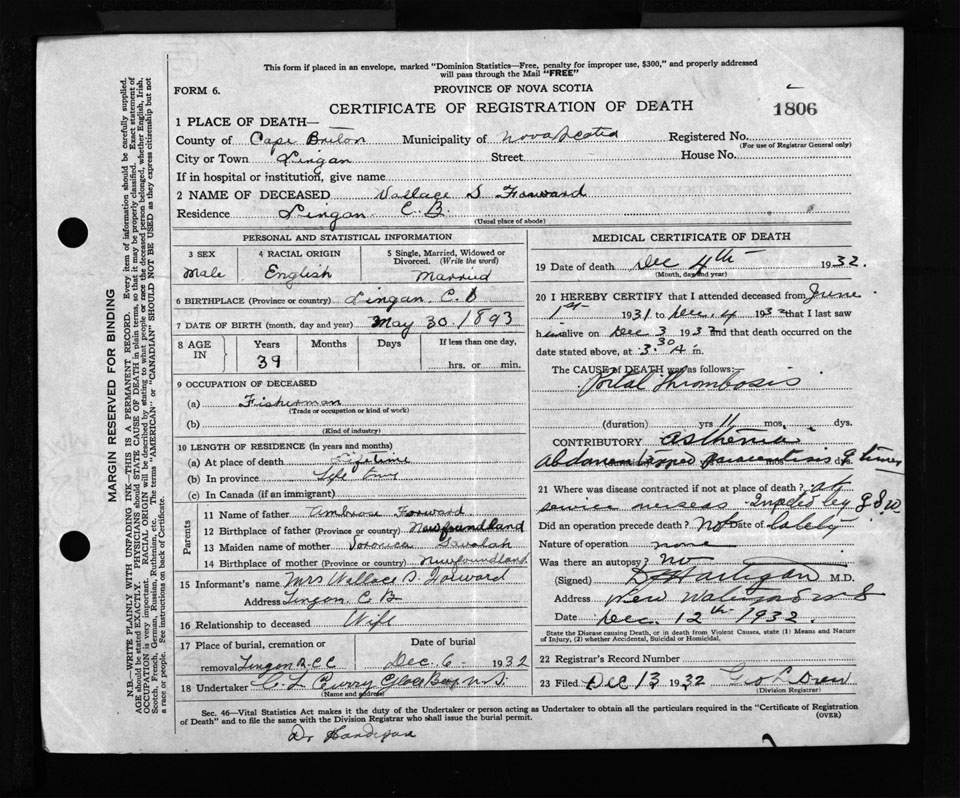 This form if placed in an envelope, marked "Dominion Statistics—Free, penalty for improper use, $300," and properly addressed
will pass through the Mail "FREE"
FORM 6.
PROVINCE OF NOVA SCOTIA
CERTIFICATE OF REGISTRATION OF DEATH
1806
1 PLACE OF DEATH—
County of Cape Breton Municipality of Nova Scotia Registered No.
(For use of Registrar General only)
City or Town Lingan Street House No.
If in hospital or institution, give name
2 NAME OF DECEASED Wallace S. Forward
Residence Lingan C.B.
(Usual place of abode)
PERSONAL AND STATISTICAL INFORMATION
3 SEX
Male
4 RACIAL ORIGIN
English
5 Single, Married, Widowed or
Divorced. (Write the word)
Married
6 BIRTHPLACE (Province or country) Lingan, C.B
7 DATE OF BIRTH (month, day and year) May 30. 1893
8 AGE
IN
Years
39
Months
Days
If less than one day,
hrs. or min.
9 OCCUPATION OF DECEASED
(a) Fisherman
(Trade or occupation or kind of work)
(b)
(Kind of industry)
10 LENGTH OF RESIDENCE (in years and months)
(a) At place of death Life time
(b) In province Life time
(c) In Canada (if an immigrant)
Parents
11 Name of father Ambrose Forward
12 Birthplace of father (Province or country) Newfoundland
13 Maiden name of mother Voronica
14 Birthplace of mother (Province or country) Newfoundland
15 Informant's name Mrs Wallace S. Forward
Address Lingan C B
16 Relationship to deceased Wife
17 Place of burial, cremation or
removal Lingan R.C.C
Date of burial
Dec. 6 1932
18 Undertaker C. L Curry Glace Bay N.S.
(Name and address)
MEDICAL CERTIFICATE OF DEATH
19 Date of death Dec 4th 1932.
(Month, day and year)
20 I HEREBY CERTIFY that I attended deceased from June
1st 1931 to Dec. 4 1932 that I last saw
him alive on Dec 3 1932 and that death occurred on the
date stated above, at 3.30 A m.
The CAUSE OF DEATH was as follows:—
Portal Thrombosis
(duration) yrs 11 mos. dys.
CONTRIBUTORY asthenia
Abdomen tapped paracentisis 9 times
mos. dys.
21 Where was disease contracted if not at place of death? at
service overseas
Did an operation precede death? Not Date of lately
Nature of operation none
Was there an autopsy? No
(Signed) Hartigan M.D.
Address New Waterford N S
Date Dec. 12th 1932.
State the Disease causing Death, or in death from Violent Causes, state (1) Means and Nature
of Injury, (2) whether Accidental, Suicidal or Homicidal.
22 Registrar's Record Number
23 Filed DEC 13 1932 Geo L Drew
(Division Registrar)
Sec. 46—Vital Statistics Act makes it the duty of the Undertaker or person acting as Undertaker to obtain all the particulars required in the "Certificate of Registration
of Death" and to file the same with the Division Registrar who shall issue the burial permit.
(OVER)
Dr
MARGIN RESERVED FOR BINDING
N.B.—WRITE PLAINLY WITH UNFADING INK—THIS IS A PERMANENT RECORD. Every item of information should be carefully supplied.
AGE should be stated EXACTLY. PHYSICIANS should STATE CAUSE OF DEATH in plain terms, so that it may be properly classified. Exact statement of
OCCUPATION is very important. RACIAL ORIGIN will be described by stating to what people or race the deceased person belonged, whether English, Irish,
Scotch, French, German, Russian, Ruthenian, etc. The terms "AMERICAN" or "CANADIAN" SHOULD NOT BE USED as they express citizenship but not
a race or people. See instructions on back of Certificate.